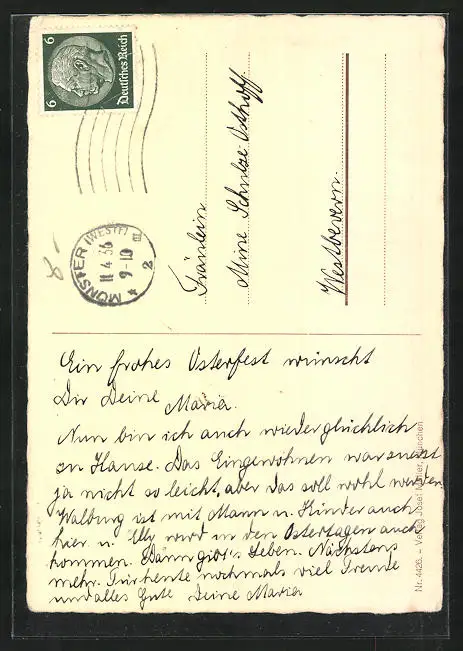 6 6
Deutsches Reich
MÜNSTER (WESTF)
11 4 36
9-10
III
2
Fräulein
Mine Schulze Osthoff
Westbevern.
Ein frohes Osterfest wünscht
Dir Deine Maria.
Nun bin ich auch wieder glücklich
zu Hause. Das Eingewöhnen war zuerst
ja nicht so leicht, aber das soll wohl werden
Walburg ist mit Mann u. Kinder auch
hier u. Elly wird in den Ostertagen auch
kommen. Dann gibt's Leben. Nächstens
mehr. Für heute nochmals viel Freude
und alles Gute Deine Maria
Nr. 4426. – Verlag Josef Müller, München